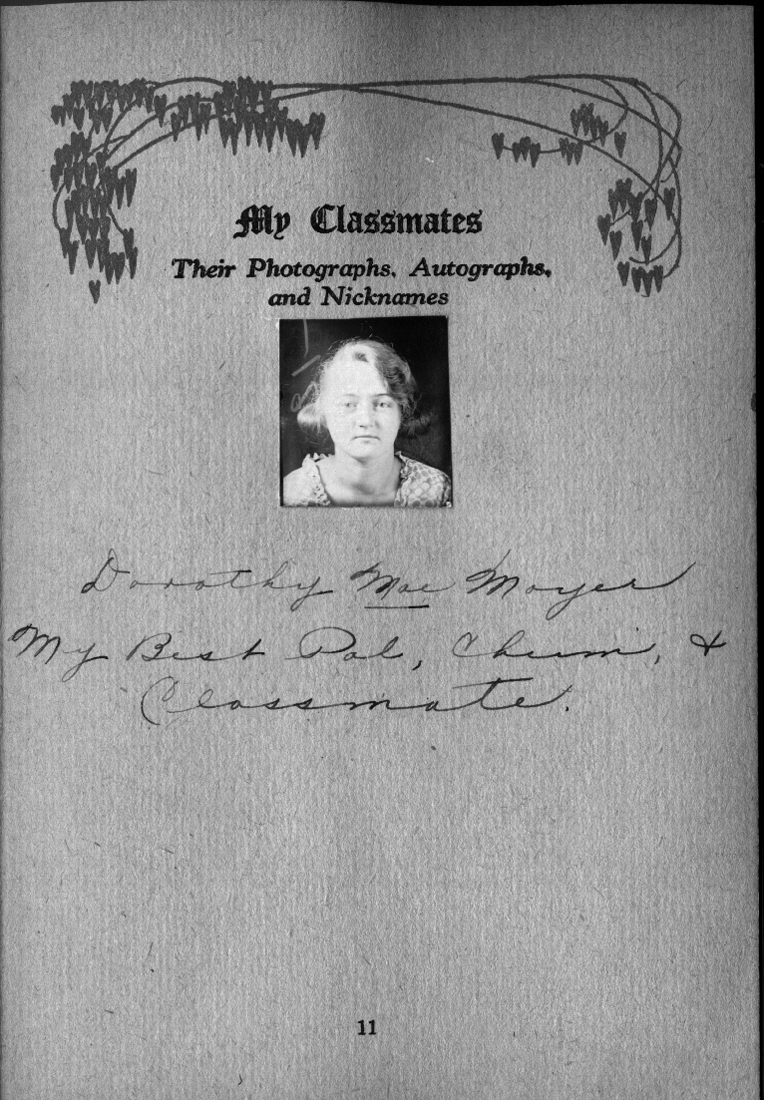 My Classmates
Their Photographs, Autographs,
and Nicknames
Dorothy Mae Moyer
My Best Pal, Chum, &
Classmate.
11